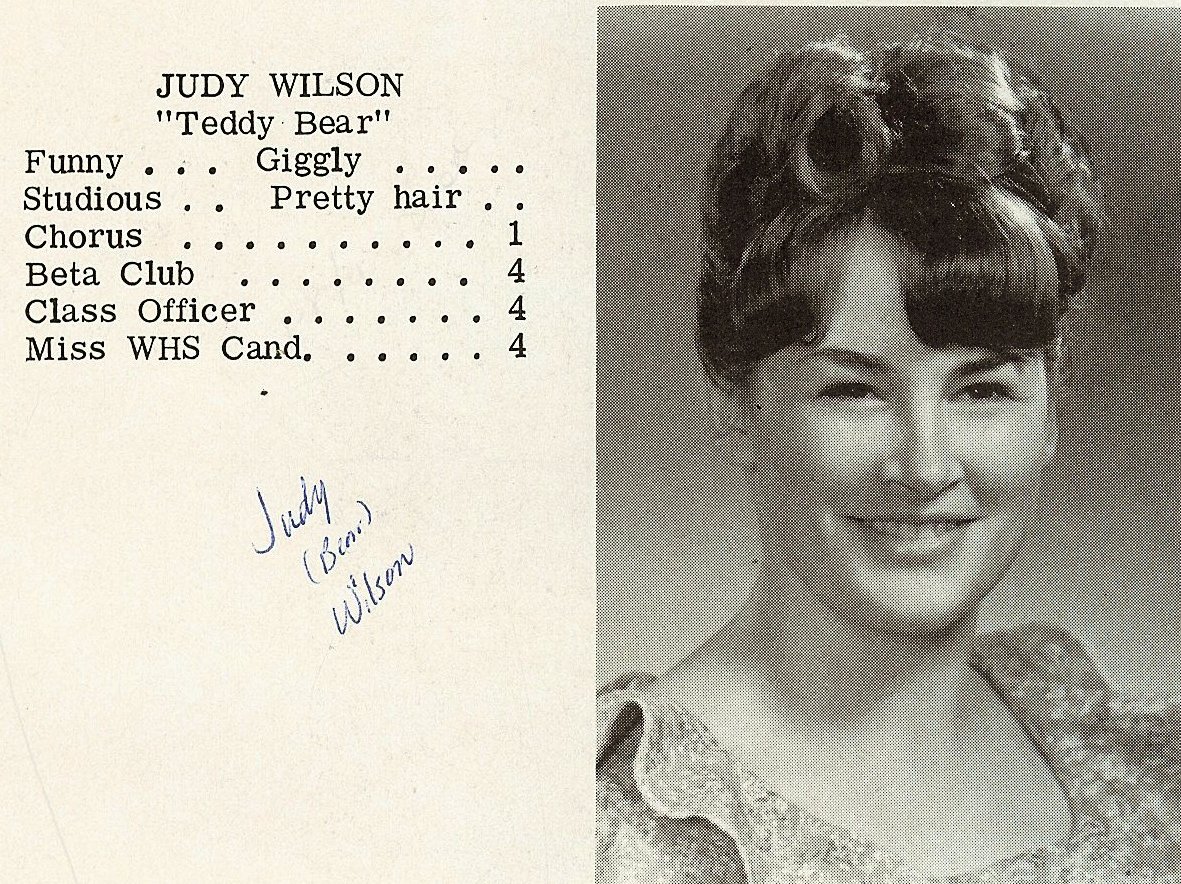 JUDY WILSON
"Teddy Bear"
Funny . . . Giggly . . . . .
Studious . . Pretty hair . .
Chorus . . . . . . . . . . 1
Beta Club . . . . . . . . 4
Class Officer . . . . . . . 4
Miss WHS Cand. . . . . . 4
Judy
(Bear)
Wilson